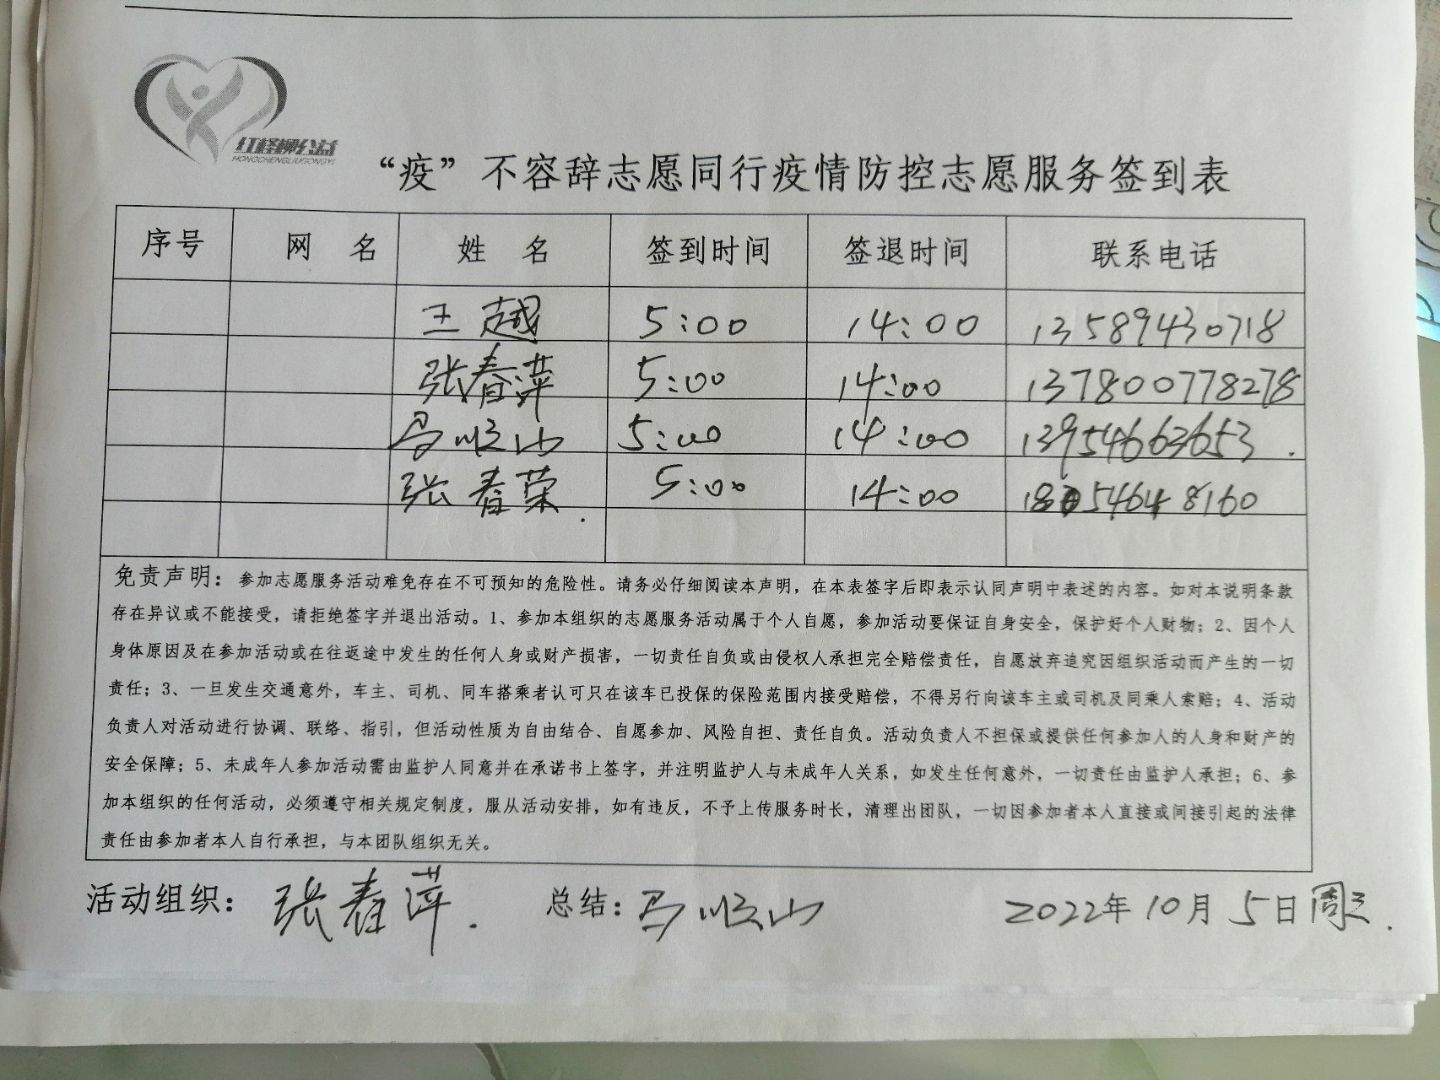 红柽柳公益
HONGCHENGLIUGONGYI
“疫”不容辞志愿同行疫情防控志愿服务签到表
序号 网 名 姓 名 签到时间 签退时间 联系电话
王越 5:00 14:00 13589430718
张春萍 5:00 14:00 137800778278
马顺山 5:00 14:00 13954663653.
张春荣. 5:00 14:00 54648160
免责声明：参加志愿服务活动难免存在不可预知的危险性。请务必仔细阅读本声明，在本表签字后即表示认同声明中表述的内容。如对本说明条款
存在异议或不能接受，请拒绝签字并退出活动。1、参加本组织的志愿服务活动属于个人自愿，参加活动要保证自身安全，保护好个人财物；2、因个人
身体原因及在参加活动或在往返途中发生的任何人身或财产损害，一切责任自负或由侵权人承担完全赔偿责任，自愿放弃追究因组织活动而产生的一切
责任；3、一旦发生交通意外，车主、司机、同车搭乘者认可只在该车已投保的保险范围内接受赔偿，不得另行向该车主或司机及同乘人索赔；4、活动
负责人对活动进行协调、联络、指引，但活动性质为自由结合、自愿参加、风险自担、责任自负。活动负责人不担保或提供任何参加人的人身和财产的
安全保障；5、未成年人参加活动需由监护人同意并在承诺书上签字，并注明监护人与未成年人关系，如发生任何意外，一切责任由监护人承担；6、参
加本组织的任何活动，必须遵守相关规定制度，服从活动安排，如有违反，不予上传服务时长，清理出团队，一切因参加者本人直接或间接引起的法律
责任由参加者本人自行承担，与本团队组织无关。
活动组织：张春萍. 总结：马顺山 2022年10月5日周三.